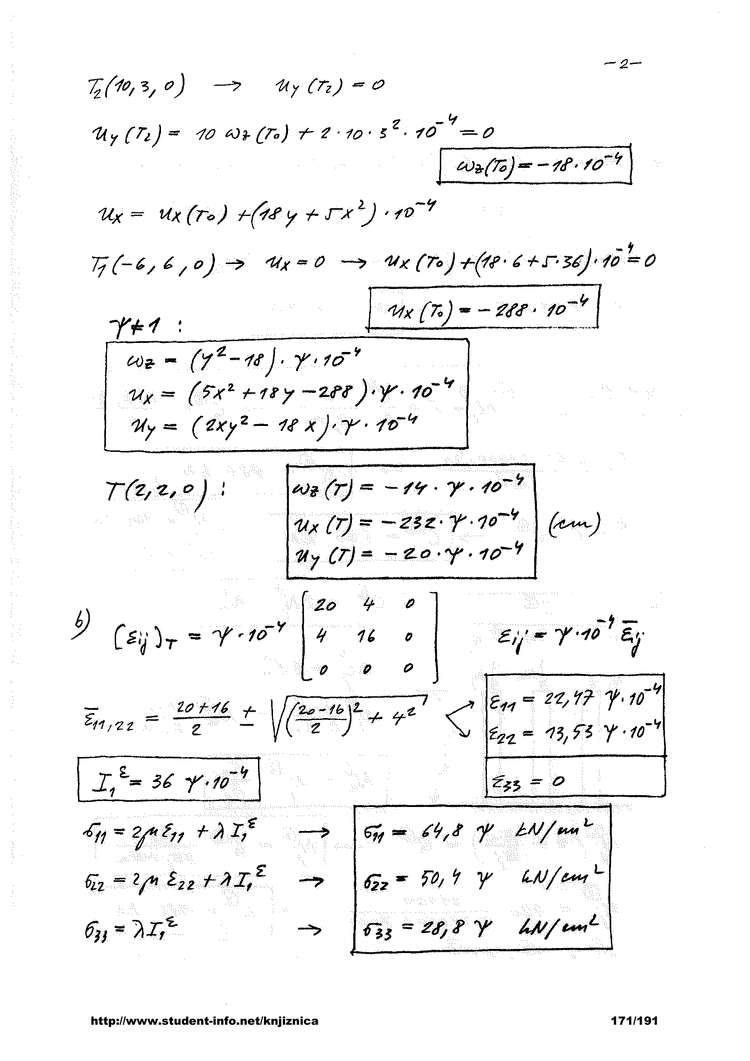 -2-
T₂(10,3,0) → u_y(T₂) = 0
u_y(T₂) = 10 ω_z(T₀) + 2·10·3²·10⁻⁴ = 0
ω_z(T₀) = -18·10⁻⁴
u_x = u_x(T₀) + (18y + 5x²)·10⁻⁴
T₁(-6,6,0) → u_x = 0 → u_x(T₀) + (18·6 + 5·36)·10⁻⁴ = 0
u_x(T₀) = -288·10⁻⁴
ψ≠1 :
ω_z = (y² - 18)·ψ·10⁻⁴
u_x = (5x² + 18y - 288)·ψ·10⁻⁴
u_y = (2xy² - 18x)·ψ·10⁻⁴
T(2,2,0) :
ω_z(T) = -14·ψ·10⁻⁴
u_x(T) = -232·ψ·10⁻⁴ (cm)
u_y(T) = -20·ψ·10⁻⁴
b) [ε_ij]_T = ψ·10⁻⁴ [20 4 0
4 16 0
0 0 0] ε_ij = ψ·10⁻⁴ ε̄_ij
ε̄₁₁,₂₂ = (20+16)/2 ± √(((20-16)/2)² + 4²)
ε₁₁ = 22,47 ψ·10⁻⁴
ε₂₂ = 13,53 ψ·10⁻⁴
ε₃₃ = 0
I₁^ε = 36 ψ·10⁻⁴
σ₁₁ = 2μ ε₁₁ + λ I₁^ε → σ₁₁ = 64,8 ψ kN/cm²
σ₂₂ = 2μ ε₂₂ + λ I₁^ε → σ₂₂ = 50,4 ψ kN/cm²
σ₃₃ = λ I₁^ε → σ₃₃ = 28,8 ψ kN/cm²
http://www.student-info.net/knjiznica 171/191